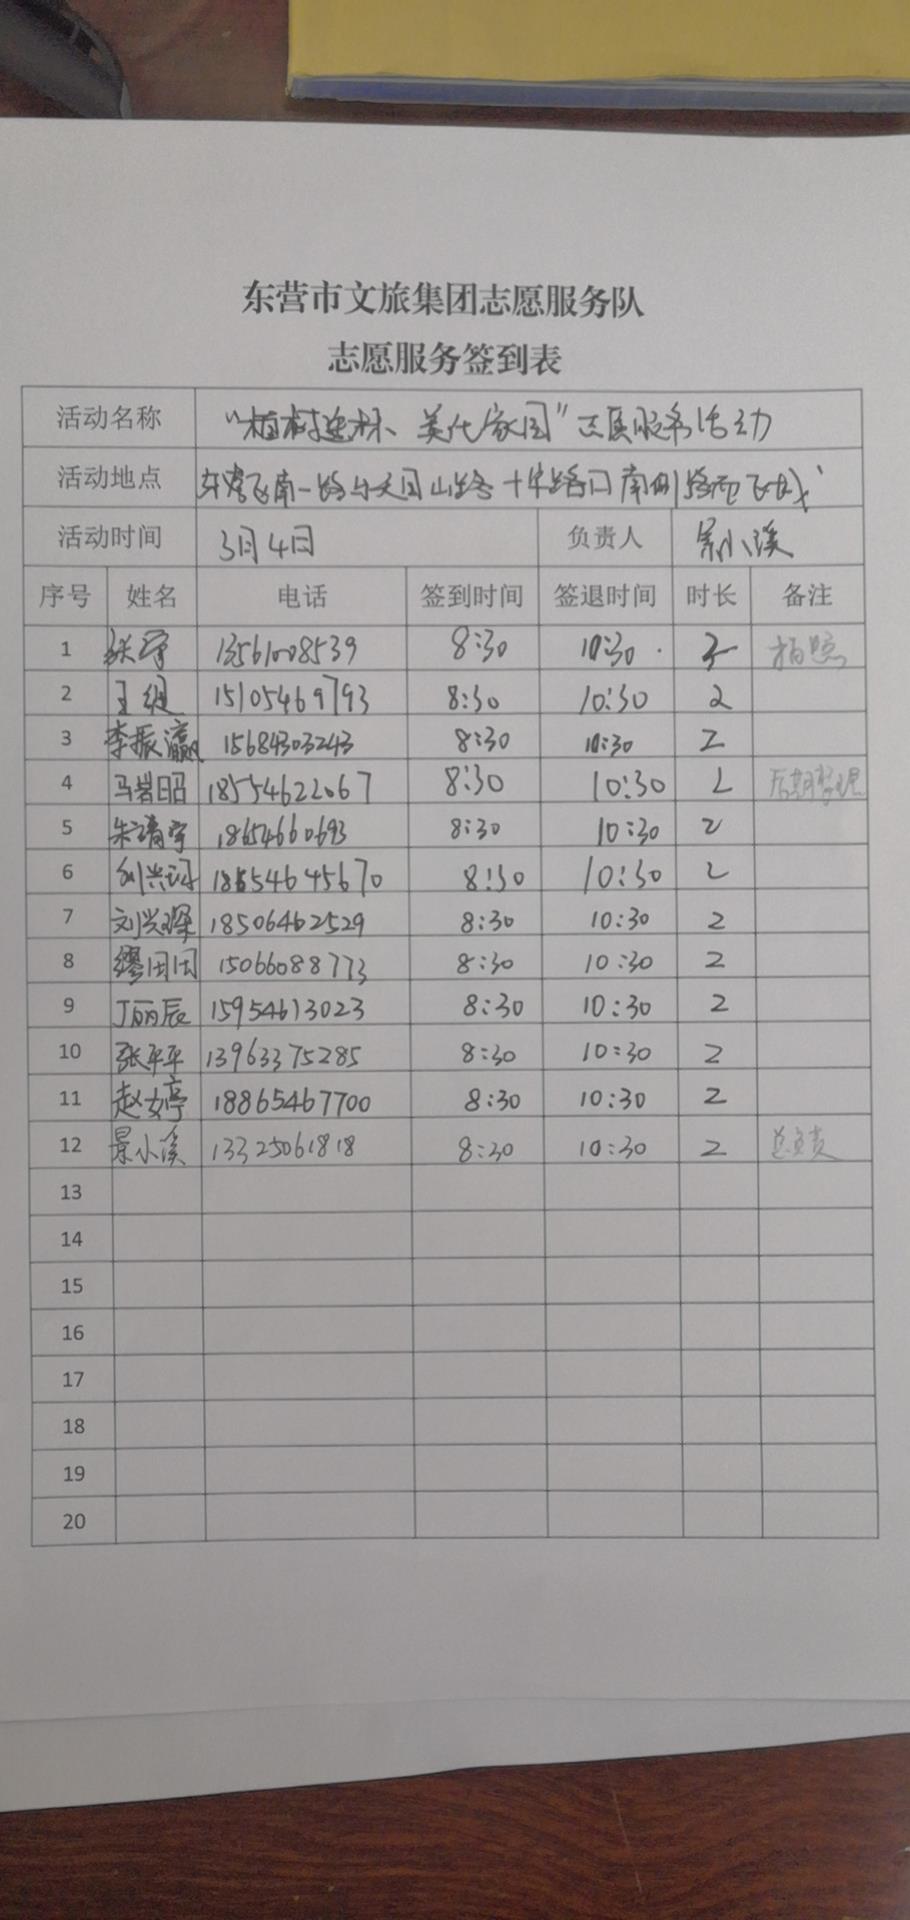 东营市文旅集团志愿服务队
志愿服务签到表
活动名称 “植树造林、美化家园”志愿服务活动
活动地点 东营区南一路与天目山路十字路口南侧
活动时间 3月4日 负责人 景小溪
序号 姓名 电话 签到时间 签退时间 时长 备注
1 张宇 13561008539 8:30 10:30 2 拍照
2 王纽 15105469793 8:30 10:30 2
3 李振瀛 15684303243 8:30 10:30 2
4 马岩昭 18554622067 8:30 10:30 2 后期整理
5 朱靖宇 18654660693 8:30 10:30 2
6 刘兴 18654645670 8:30 10:30 2
7 刘兴琛 18506462529 8:30 10:30 2
8 缪田田 15066088773 8:30 10:30 2
9 丁丽辰 15954613023 8:30 10:30 2
10 张平平 13963375285 8:30 10:30 2
11 赵女亭 18865467700 8:30 10:30 2
12 景小溪 13325061818 8:30 10:30 2 总负责
13
14
15
16
17
18
19
20